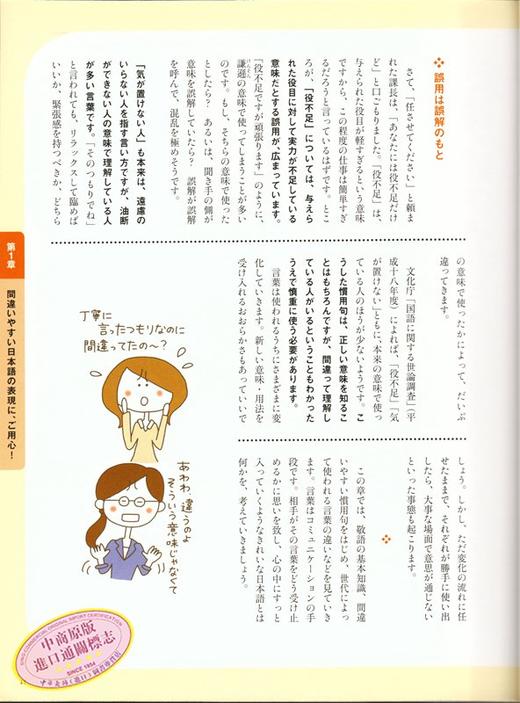 誤用は誤解のもと
さて、「任させてください」と頼ま
れた課長は、「あなたには役不足だけ
ど」と口ごもりました。「役不足」は、
与えられた役目が軽すぎるという意味
ですから、この程度の仕事は簡単すぎ
るだろうと言っているはずです。とこ
ろが、「役不足」については、与えら
れた役目に対して実力が不足している
意味だとする誤用が、広まっています。
「役不足ですが頑張ります」のように、
謙遜の意味で使ってしまうことが多い
のです。もし、そちらの意味で使った
としたら？　あるいは、聞き手の側が
意味を誤解していたら？　誤解が誤解
を呼んで、混乱を極めそうです。
「気が置けない人」も本来は、遠慮の
いらない人を指す言い方ですが、油断
ができない人の意味で理解している人
が多い言葉です。「そのつもりでね」
と言われても、リラックスして臨めば
いいか、緊張感を持つべきか、どちら
の意味で使ったかによって、だいぶ
違ってきます。
文化庁「国語に関する世論調査」（平
成十八年度）によれば、「役不足」「気
が置けない」ともに、本来の意味で使っ
ている人のほうが少ないようです。こ
うした慣用句は、正しい意味を知るこ
とはもちろんですが、間違って理解し
ている人がいるということもわかった
うえで慎重に使う必要があります。
言葉は使われるうちにさまざまに変
化していきます。新しい意味・用法を
受け入れるおおらかさもあっていいで
しょう。しかし、ただ変化の流れに任
せたままで、それぞれが勝手に使い出
したら、大事な場面で意思が通じない
といった事態も起こります。
この章では、敬語の基本知識、間違
いやすい慣用句をはじめ、世代によっ
て使われる言葉の違いなどを見ていき
ます。言葉はコミュニケーションの手
段です。相手がその言葉をどう受け止
めるかに思いを致し、心の中にすっと
入っていくようなきれいな日本語とは
何かを、考えていきましょう。
第1章
間違いやすい日本語の表現に、ご用心！
丁寧に
言ったつもりなのに
間違ってたの〜？
あわわ 違うのよ
そういう意味じゃなくて
中商原版
進口通關標志
SINCE 1954